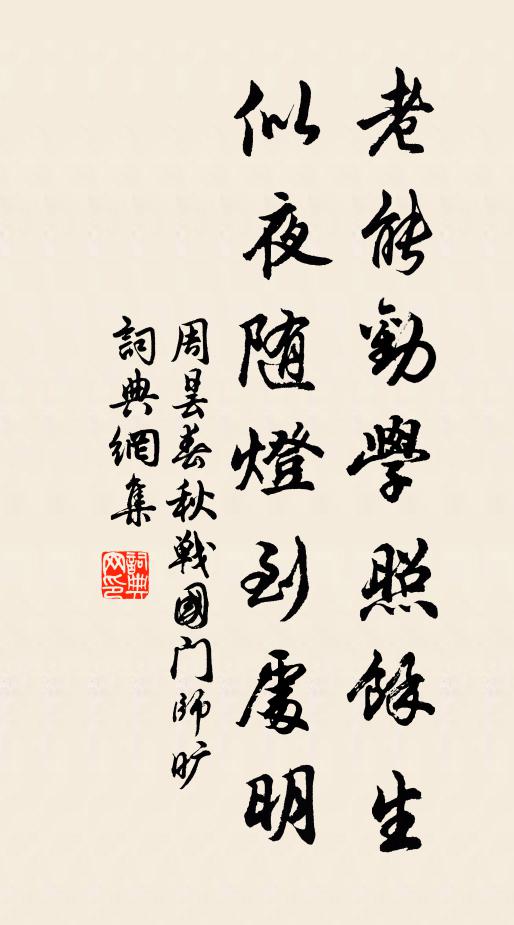 老能勸學照餘生
似夜隨燈到處明
周曇春秋戰國門師曠
詞典網集
詞典
网印